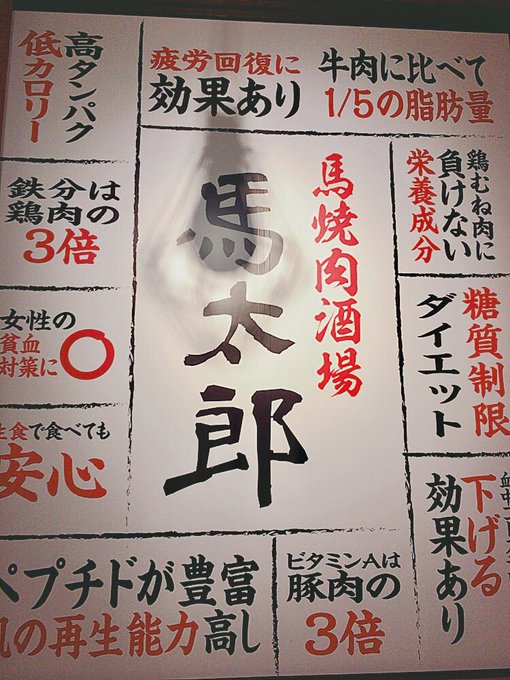 高タンパク
低カロリー
疲労回復に
効果あり
牛肉に比べて
1/5の脂肪量
鉄分は
鶏肉の
3倍
馬焼肉酒場
馬太郎
鶏むね肉に
負けない
栄養成分
女性の
貧血
対策に
○
糖質制限
ダイエット
生食で食べても
安心
下げる
効果あり
ペプチドが豊富
の再生能力高し
ビタミンAは
豚肉の
3倍